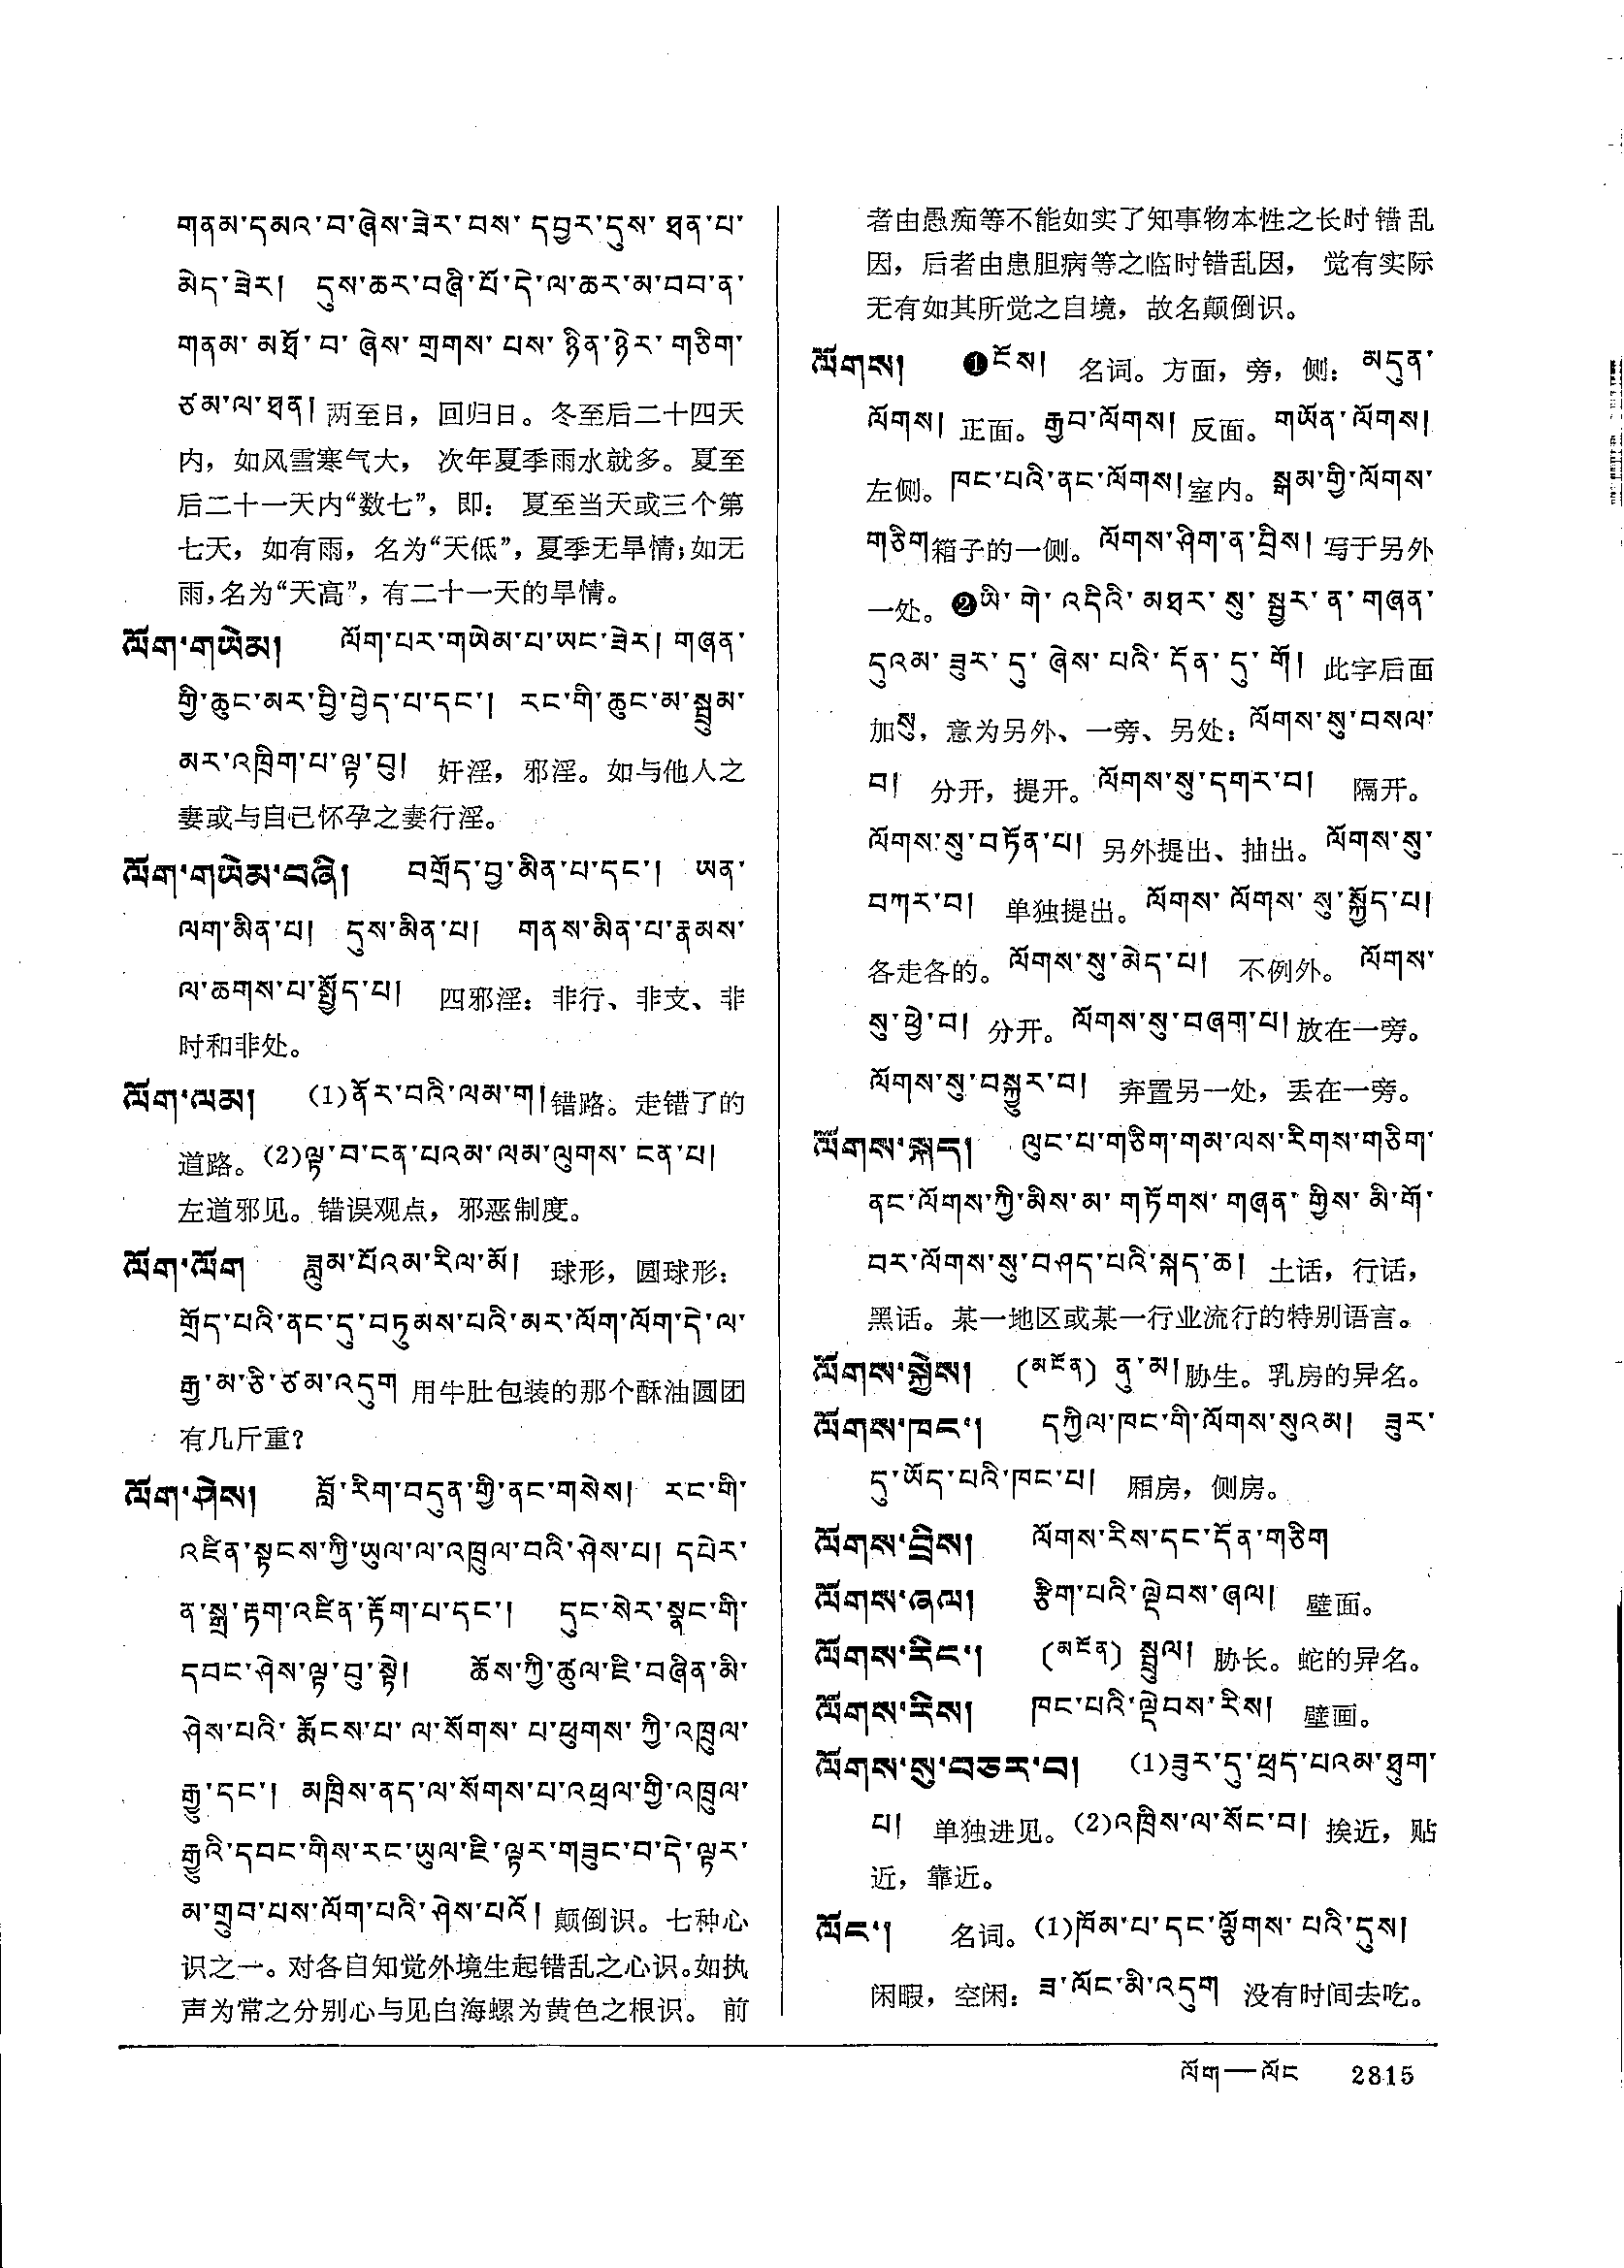 གནམ་དམའ་བ་ཞེས་ཟེར་བས་ དབྱར་དུས་ ཐན་པ་
མེད་ཟེར། དུས་ཆར་བཞི་པོ་དེ་ལ་ཆར་མ་བབ་ན་
གནམ་ མཐོ་ བ་ ཞེས་ གྲགས་ པས་ ཉིན་ཉེར་ གཅིག་
ཙམ་ལ་ཐན། 两至日，回归日。冬至后二十四天
内，如风雪寒气大， 次年夏季雨水就多。夏至
后二十一天内“数七”，即： 夏至当天或三个第
七天，如有雨，名为“天低”，夏季无旱情；如无
雨，名为“天高”，有二十一天的旱情。
ལོག་གཡེམ། ལོག་པར་གཡེམ་པ་ཡང་ཟེར། གཞན་
གྱི་ཆུང་མར་བྱི་བྱེད་པ་དང་། རང་གི་ཆུང་མ་སྦྲུམ་
མར་འཁྲིག་པ་ལྟ་བུ། 奸淫，邪淫。如与他人之
妻或与自己怀孕之妻行淫。
ལོག་གཡེམ་བཞི། བགྲོད་བྱ་མིན་པ་དང་། ཡན་
ལག་མིན་པ། དུས་མིན་པ། གནས་མིན་པ་རྣམས་
ལ་ཆགས་པ་སྤྱོད་པ། 四邪淫：非行、非支、非
时和非处。
ལོག་ལམ། (1)ནོར་བའི་ལམ་ག།错路。走错了的
道路。(2)ལྟ་བ་ངན་པའམ་ལམ་ལུགས་ ངན་པ།
左道邪见。错误观点，邪恶制度。
ལོག་ལོག ཟླུམ་པོའམ་རིལ་མོ། 球形，圆球形：
གྲོད་པའི་ནང་དུ་བཏུམས་པའི་མར་ལོག་ལོག་དེ་ལ་
རྒྱ་མ་ཅི་ཙམ་འདུག 用牛肚包装的那个酥油圆团
有几斤重？
ལོག་ཤེས། བློ་རིག་བདུན་གྱི་ནང་གསེས། རང་གི་
འཛིན་སྟངས་ཀྱི་ཡུལ་ལ་འཁྲུལ་བའི་ཤེས་པ། དཔེར་
ན་སྒྲ་རྟག་འཛིན་རྟོག་པ་དང་། དུང་སེར་སྣང་གི་
དབང་ཤེས་ལྟ་བུ་སྟེ། ཆོས་ཀྱི་ཚུལ་ཇི་བཞིན་མི་
ཤེས་པའི་ རྨོངས་པ་ ལ་སོགས་ པ་ཕུགས་ ཀྱི་འཁྲུལ་
རྒྱུ་དང་། མཁྲིས་ནད་ལ་སོགས་པ་འཕྲལ་གྱི་འཁྲུལ་
རྒྱུའི་དབང་གིས་རང་ཡུལ་ཇི་ལྟར་གཟུང་བ་དེ་ལྟར་
མ་གྲུབ་པས་ལོག་པའི་ཤེས་པའོ། 颠倒识。七种心
识之一。对各自知觉外境生起错乱之心识。如执
声为常之分别心与见白海螺为黄色之根识。 前
者由愚痴等不能如实了知事物本性之长时错乱
因，后者由患胆病等之临时错乱因， 觉有实际
无有如其所觉之自境，故名颠倒识。
ལོགས། ❶ངོས། 名词。方面，旁，侧： མདུན་
ལོགས། 正面。རྒྱབ་ལོགས། 反面。གཡོན་ལོགས།
左侧。ཁང་པའི་ནང་ལོགས།室内。སྒམ་གྱི་ལོགས་
གཅིག箱子的一侧。ལོགས་ཤིག་ན་བྲིས། 写于另外
一处。❷ཡི་ གེ་ འདིའི་ མཐར་ སུ་ སྦྱར་ ན་ གཞན་
དུའམ་ ཟུར་ དུ་ ཞེས་ པའི་ དོན་ དུ་ གོ། 此字后面
加སུ，意为另外、一旁、另处：ལོགས་སུ་བསལ་
བ། 分开，提开。ལོགས་སུ་དགར་བ། 隔开。
ལོགས་སུ་བཏོན་པ། 另外提出、抽出。ལོགས་སུ་
བཀར་བ། 单独提出。ལོགས་ ལོགས་ སུ་སྐྱོད་པ།
各走各的。ལོགས་སུ་མེད་པ། 不例外。 ལོགས་
སུ་ཕྱེ་བ། 分开。ལོགས་སུ་བཞག་པ།放在一旁。
ལོགས་སུ་བསྐྱུར་བ། 弃置另一处，丢在一旁。
ལོགས་སྐད། ལུང་པ་གཅིག་གམ་ལས་རིགས་གཅིག་
ནང་ལོགས་ཀྱི་མིས་མ་ གཏོགས་ གཞན་ གྱིས་ མི་གོ་
བར་ལོགས་སུ་བཤད་པའི་སྐད་ཆ། 土话，行话，
黑话。某一地区或某一行业流行的特别语言。
ལོགས་སྐྱེས། (མངོན) ནུ་མ།胁生。乳房的异名。
ལོགས་ཁང་། དཀྱིལ་ཁང་གི་ལོགས་སུའམ། ཟུར་
དུ་ཡོད་པའི་ཁང་པ། 厢房，侧房。
ལོགས་བྲིས། ལོགས་རིས་དང་དོན་གཅིག
ལོགས་ཞལ། རྩིག་པའི་ལྡེབས་ཞལ། 壁面。
ལོགས་རིང་། (མངོན) སྦྲུལ། 胁长。蛇的异名。
ལོགས་རིས། ཁང་པའི་ལྡེབས་རིས། 壁画。
ལོགས་སུ་བཅར་བ། (1)ཟུར་དུ་ཕྲད་པའམ་ཐུག་
པ། 单独进见。(2)འཁྲིས་ལ་སོང་བ། 挨近，贴
近，靠近。
ལོང་། 名词。(1)ཁོམ་པ་དང་ལྷོགས་ པའི་དུས།
闲暇，空闲：ཟ་ལོང་མི་འདུག 没有时间去吃。
ལོག—ལོང 2815